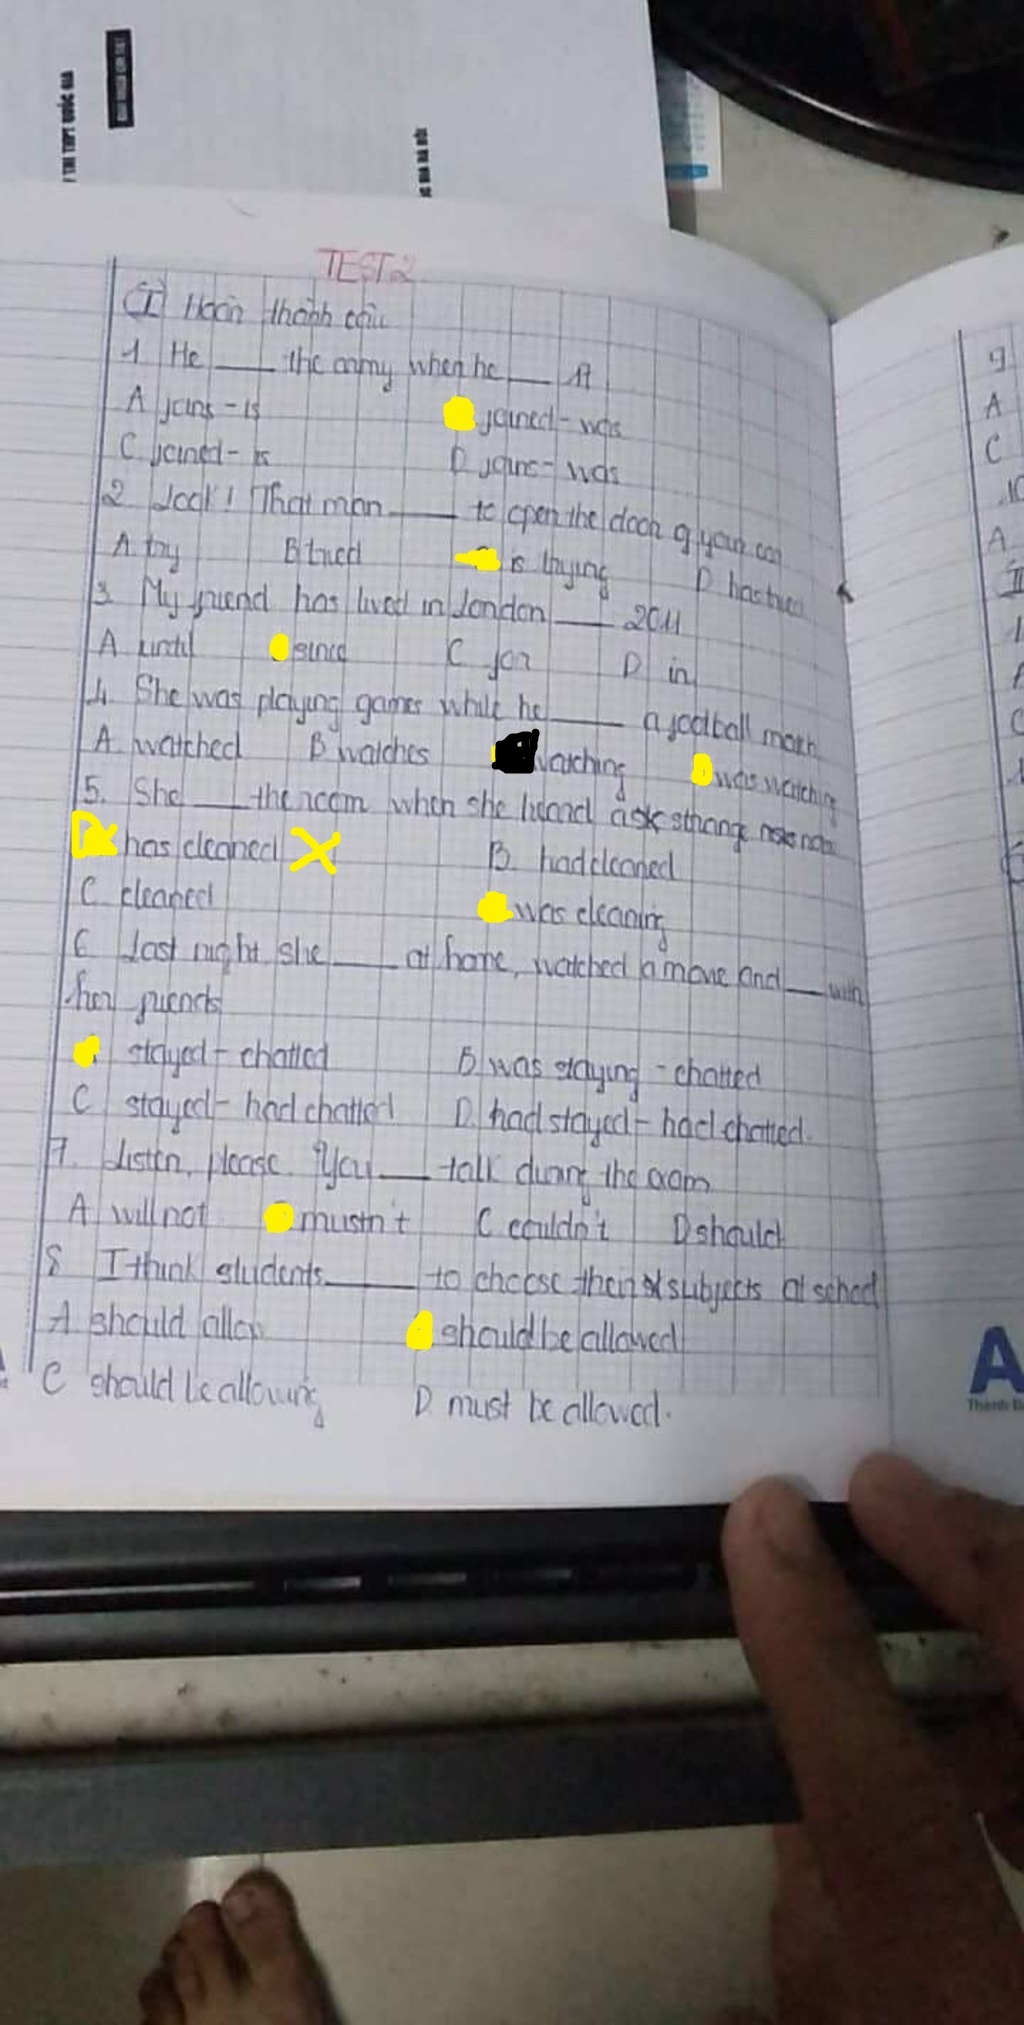 THI THPT QUỐC GIA
TEST 2
I Hoàn thành câu
1 He ___ the army when he ___ 17
A joins - is joined - was
C joined - is D joins - was
2 Look! That man ___ to open the door of your car
A try B tried is trying D has tried
3. My friend has lived in London ___ 2011
A until since C for D in
4. She was playing games while he ___ a football match
A watched B watches watching was watching
5. She ___ the room when she heard a strange noise
has cleaned B. had cleaned
C. cleaned was cleaning
6 Last night she ___ at home, watched a movie and ___ with
her friends
stayed - chatted B was staying - chatted
C stayed - had chatted D. had stayed - had chatted.
7. Listen, please. You ___ talk during the exam
A will not mustn't C couldn't D should
8 I think students ___ to choose their subjects at school
A should allow should be allowed
C should be allowing D. must be allowed.
9
A
C
10
A
II
A